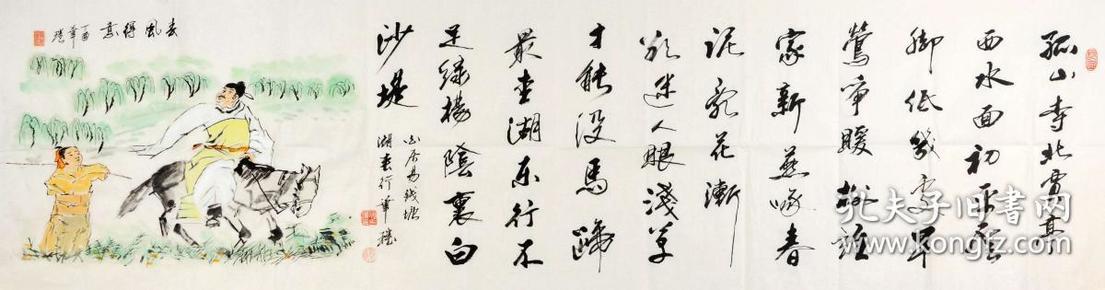 孤山寺北賈亭
西水面初平雲
脚低幾處早
鶯爭暖樹誰
家新燕啄春
泥亂花漸
欲迷人眼淺草
才能没馬蹄
最愛湖東行不
足綠楊陰裏白
沙堤
白居易錢塘
湖春行
春風得意
丁酉
孔夫子旧书网
www.kongfz.com